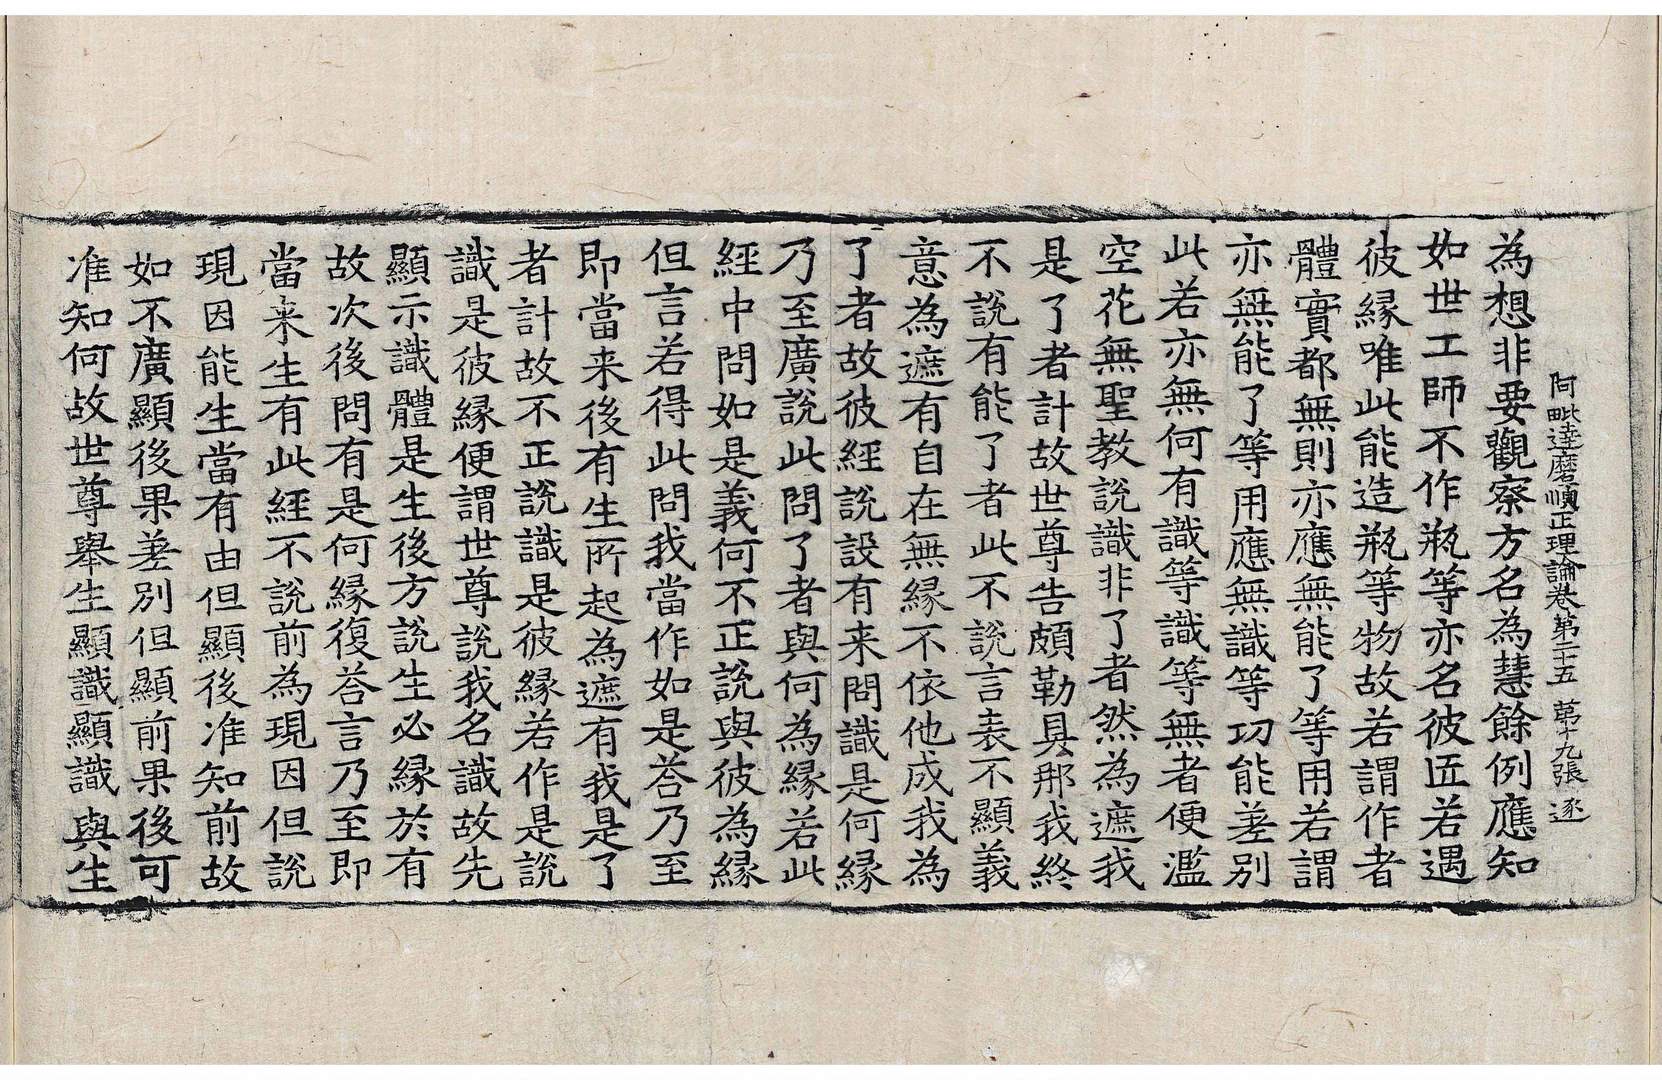 阿毗達磨順正理論卷第二十五 第十九張 逐
為想非要觀察方名為慧餘例應知
如世工師不作瓶等亦名彼匠若遇
彼緣唯此能造瓶等物故若謂作者
體實都無則亦應無能了等用若謂
亦無能了等用應無識等功能差別
此若亦無何有識等識等無者便濫
空花無聖教說識非了者然為遮我
是了者計故世尊告頗勒具那我終
不說有能了者此不說言表不顯義
意為遮有自在無緣不依他成我為
了者故彼經說設有来問識是何緣
乃至廣說此問了者與何為緣若此
經中問如是義何不正說與彼為緣
但言若得此問我當作如是荅乃至
即當来後有生所起為遮有我是了
者計故不正說識是彼緣若作是說
識是彼緣便謂世尊說我名識故先
顯示識體是生後方說生必緣於有
故次後問有是何緣復荅言乃至即
當来生有此經不說前為現因但說
現因能生當有由但顯後准知前故
如不廣顯後果差別但顯前果後可
准知何故世尊舉生顯識顯識與生